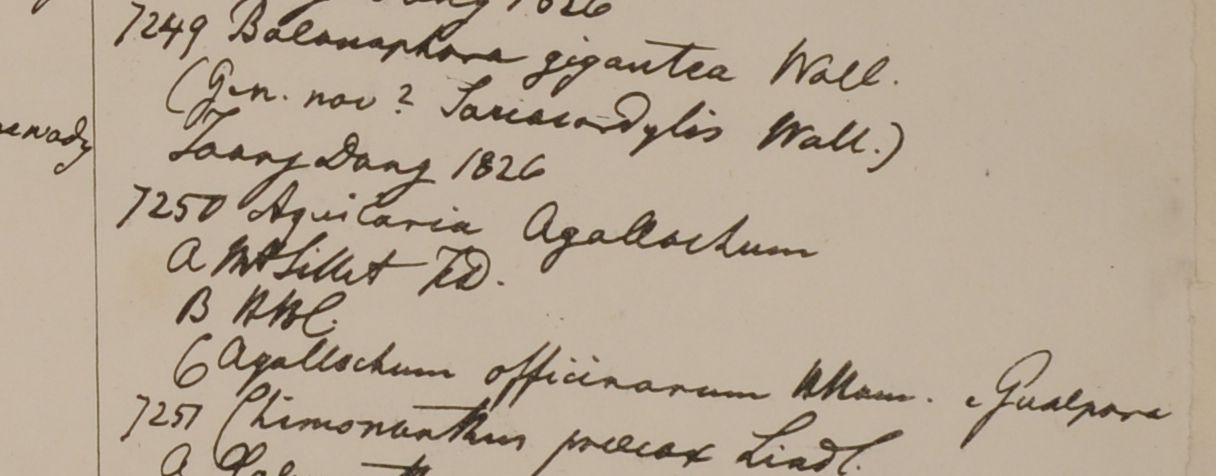 1826
7249 Balanophora gigantea Wall.
(Gen. nov? Sarcocordylis Wall.)
Taong Dong 1826
7250 Aquilaria Agallochum
A Mt Sillet FD.
B HBC.
6 Agallochum officinarum HHam. Gualpara
7251 Chimonanthus præcox Lindl.